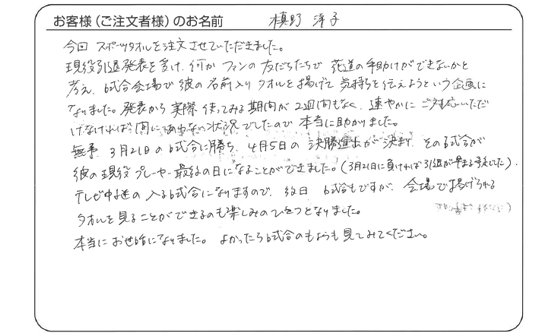 お客様(ご注文者様)のお名前 槙野 洋子
今回 スポーツタオルを注文させていただきました。
現役引退発表を受け、何か ファンの友だちたちで 花道の手助けができないかと
考え、試合会場で彼の名前入り タオルを掲げて 気持ちを伝えようという企画に
なりました。発表から 実際 使ってみる期間が 2週間もなく、速やかに ご対応いただ
けなければ 間に 合わない状況でしたので 本当に助かりました。
無事 3月21日の試合に勝ち、4月5日の 決勝進出が決まり その試合が
彼の現役プレーヤー最後の日になることができました。(3月21日に負ければ 引退が早まる
テレビ中継の入る試合になりますので、試合もですが、会場で掲げられる
タオルを見ることができるのも楽しみのひとつとなりました。
本当にお世話になりました。よかったら試合のもようも見てみてください。